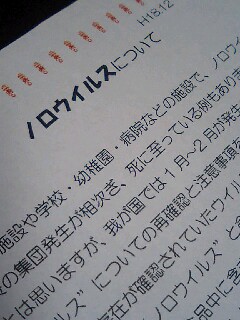 H18.12
ノロウイルスについて
施設や学校・幼稚園・病院などの施設で、ノロウイ
の集団発生が相次ぎ、死に至っている例もありま
とは思いますが、我が国では1月~2月が発生
ズ”についての再確認と注意事項を
存在が確認されていたウイル
ノロウイルス”と
品中に含